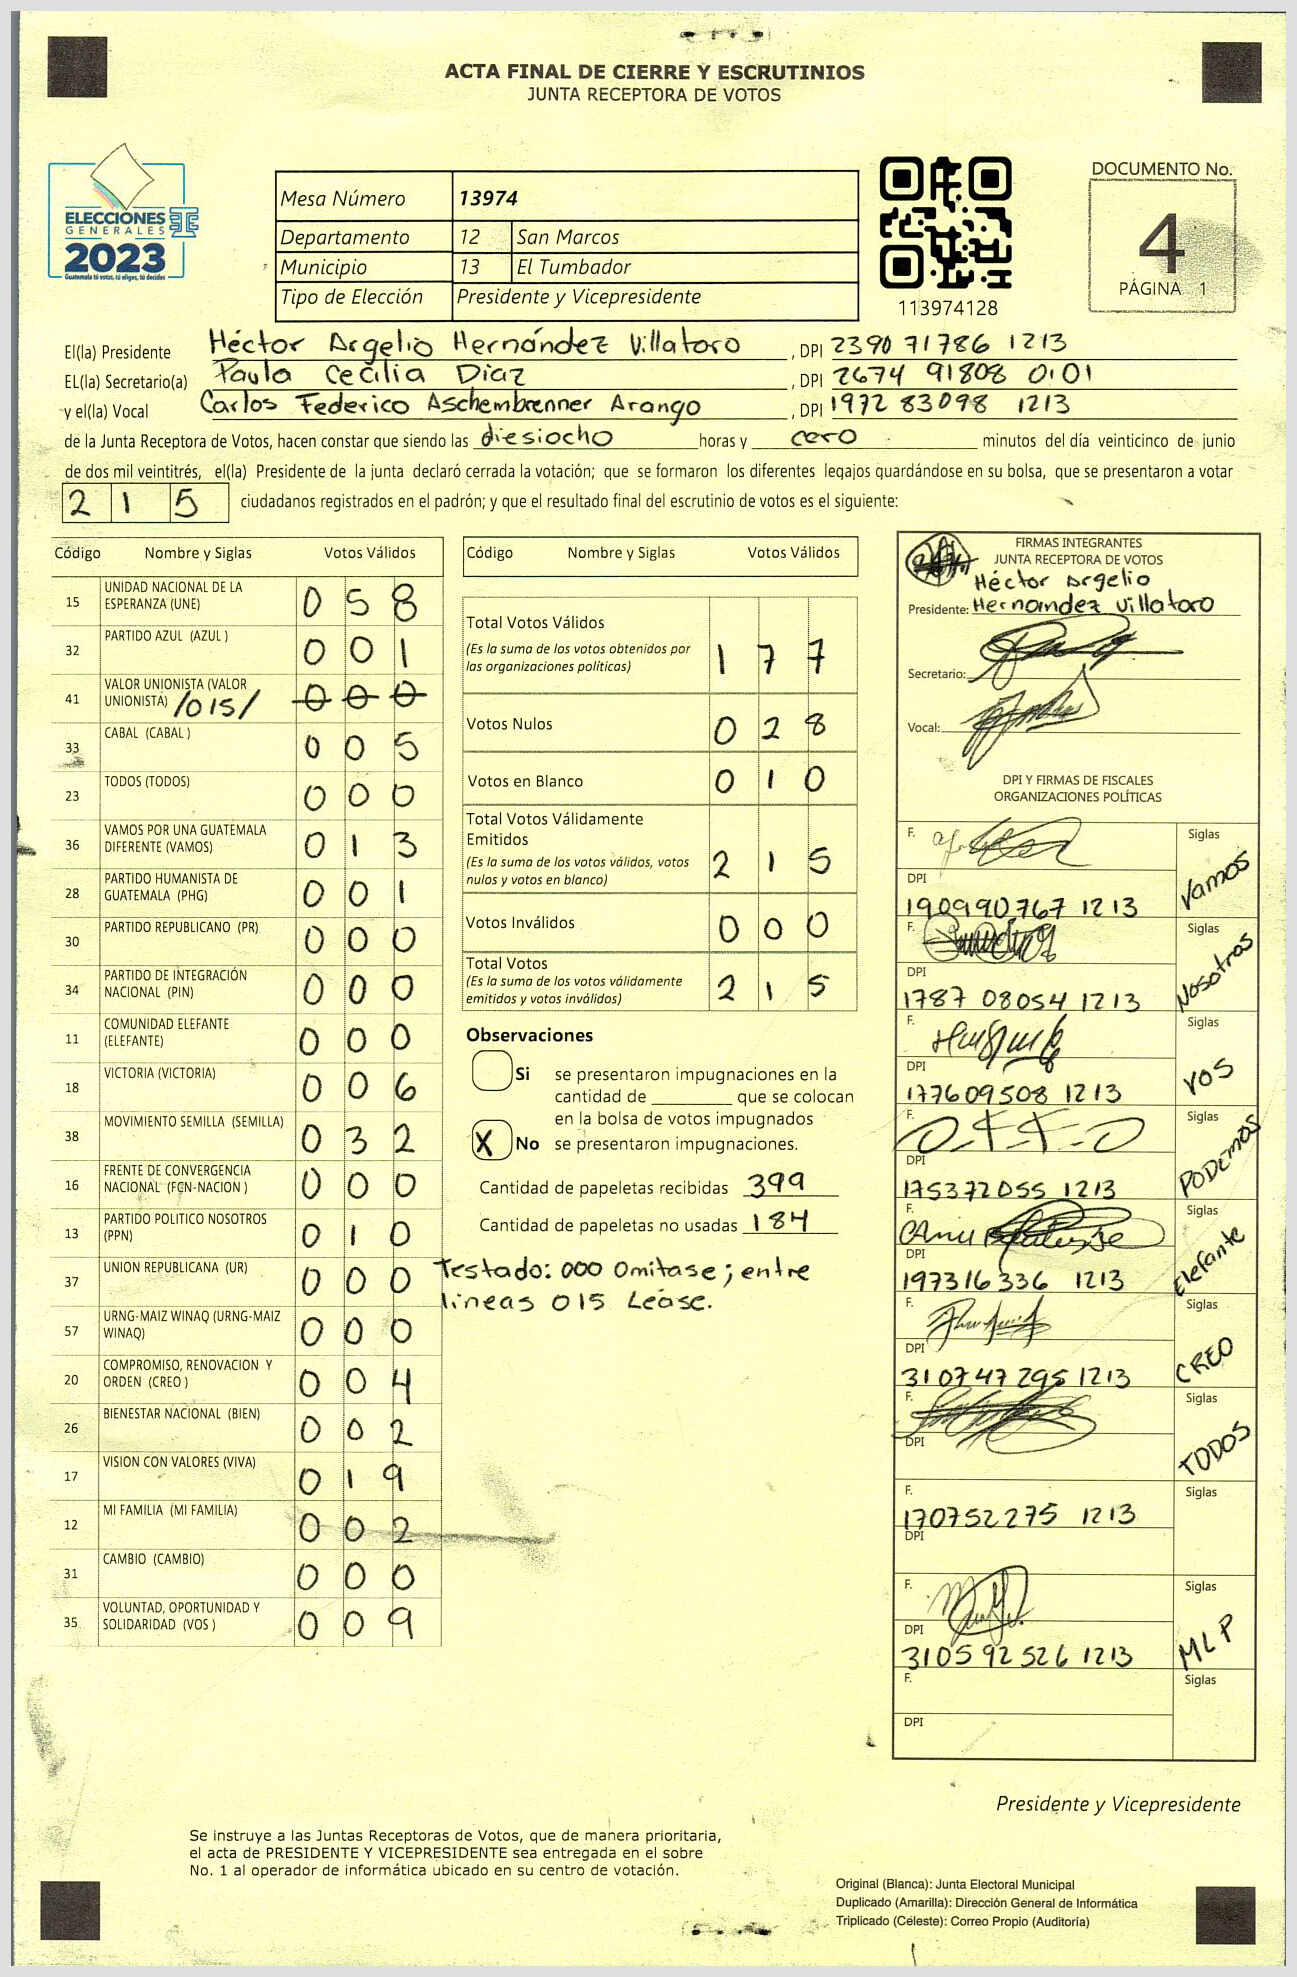 ACTA FINAL DE CIERRE Y ESCRUTINIOS
JUNTA RECEPTORA DE VOTOS
ELECCIONES
GENERALES
2023
Guatemala tú votas, tú eliges, tú decides
Mesa Número 13974
Departamento 12 San Marcos
Municipio 13 El Tumbador
Tipo de Elección Presidente y Vicepresidente
113974128
DOCUMENTO No.
4
PÁGINA 1
El(la) Presidente Héctor Argelio Hernández Villatoro , DPI 2390 71786 1213
EL(la) Secretario(a) Paula Cecilia Díaz , DPI 2674 91808 0101
y el(la) Vocal Carlos Federico Aschembrenner Arango , DPI 1972 83098 1213
de la Junta Receptora de Votos, hacen constar que siendo las diesiocho horas y cero minutos del día veinticinco de junio
de dos mil veintitrés, el(la) Presidente de la junta declaró cerrada la votación; que se formaron los diferentes legajos quardándose en su bolsa, que se presentaron a votar
2 1 5 ciudadanos registrados en el padrón; y que el resultado final del escrutinio de votos es el siguiente:
Código Nombre y Siglas Votos Válidos
15 UNIDAD NACIONAL DE LA
ESPERANZA (UNE) 0 5 8
32 PARTIDO AZUL (AZUL ) 0 0 1
41 VALOR UNIONISTA (VALOR
UNIONISTA) /015/ 0 0 0
33 CABAL (CABAL ) 0 0 5
23 TODOS (TODOS) 0 0 0
36 VAMOS POR UNA GUATEMALA
DIFERENTE (VAMOS) 0 1 3
28 PARTIDO HUMANISTA DE
GUATEMALA (PHG) 0 0 1
30 PARTIDO REPUBLICANO (PR) 0 0 0
34 PARTIDO DE INTEGRACIÓN
NACIONAL (PIN) 0 0 0
11 COMUNIDAD ELEFANTE
(ELEFANTE) 0 0 0
18 VICTORIA (VICTORIA) 0 0 6
38 MOVIMIENTO SEMILLA (SEMILLA) 0 3 2
16 FRENTE DE CONVERGENCIA
NACIONAL (FCN-NACION ) 0 0 0
13 PARTIDO POLITICO NOSOTROS
(PPN) 0 1 0
37 UNION REPUBLICANA (UR) 0 0 0
57 URNG-MAIZ WINAQ (URNG-MAIZ
WINAQ) 0 0 0
20 COMPROMISO, RENOVACION Y
ORDEN (CREO ) 0 0 4
26 BIENESTAR NACIONAL (BIEN) 0 0 2
17 VISION CON VALORES (VIVA) 0 1 9
12 MI FAMILIA (MI FAMILIA) 0 0 2
31 CAMBIO (CAMBIO) 0 0 0
35 VOLUNTAD, OPORTUNIDAD Y
SOLIDARIDAD (VOS ) 0 0 9
Código Nombre y Siglas Votos Válidos
Total Votos Válidos
(Es la suma de los votos obtenidos por
las organizaciones políticas) 1 7 7
Votos Nulos 0 2 8
Votos en Blanco 0 1 0
Total Votos Válidamente
Emitidos
(Es la suma de los votos válidos, votos
nulos y votos en blanco) 2 1 5
Votos Inválidos 0 0 0
Total Votos
(Es la suma de los votos válidamente
emitidos y votos inválidos) 2 1 5
Observaciones
Si se presentaron impugnaciones en la
cantidad de ________ que se colocan
en la bolsa de votos impugnados
X No se presentaron impugnaciones.
Cantidad de papeletas recibidas 399
Cantidad de papeletas no usadas 184
Testado: 000 Omitase; entre
lineas 015 Léase.
FIRMAS INTEGRANTES
JUNTA RECEPTORA DE VOTOS
Héctor Argelio
Presidente: Hernandez Villatoro
Secretario:
Vocal:
DPI Y FIRMAS DE FISCALES
ORGANIZACIONES POLÍTICAS
F. Siglas
Vamos
DPI
190990767 1213
F. Siglas
Nosotros
DPI
1787 08054 1213
F. Siglas
VOS
DPI
177609508 1213
F. Siglas
PODEMOS
DPI
175372055 1213
F. Siglas
Elefante
DPI
197316336 1213
F. Siglas
CREO
DPI
310747295 1213
F. Siglas
TODOS
DPI
F. Siglas
170752275 1213
DPI
F. Siglas
MLP
DPI
3105 92 526 1213
F. Siglas
DPI
Presidente y Vicepresidente
Se instruye a las Juntas Receptoras de Votos, que de manera prioritaria,
el acta de PRESIDENTE Y VICEPRESIDENTE sea entregada en el sobre
No. 1 al operador de informática ubicado en su centro de votación.
Original (Blanca): Junta Electoral Municipal
Duplicado (Amarilla): Dirección General de Informática
Triplicado (Celeste): Correo Propio (Auditoría)